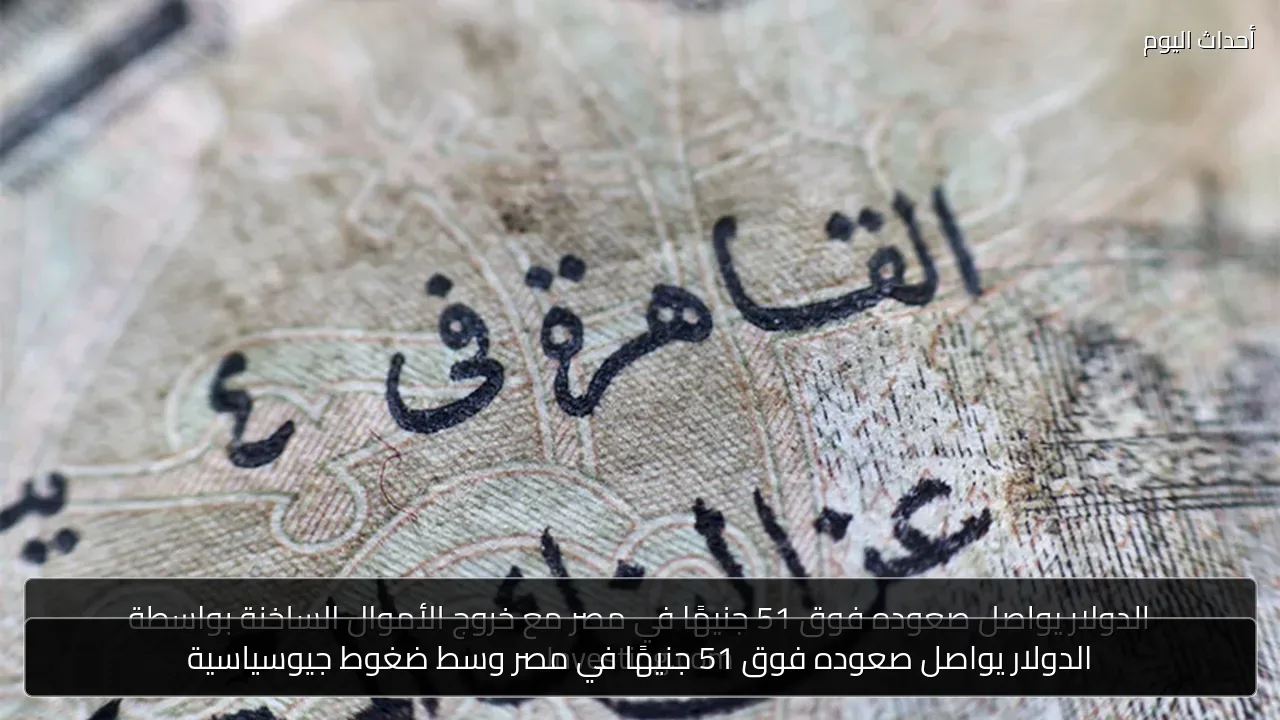 أحداث اليوم
القاهرة في
الدولار يواصل صعوده فوق 51 جنيهًا في مصر مع خروج الأموال الساخنة بواسطة
Investing.com
الدولار يواصل صعوده فوق 51 جنيهًا في مصر وسط ضغوط جيوسياسية